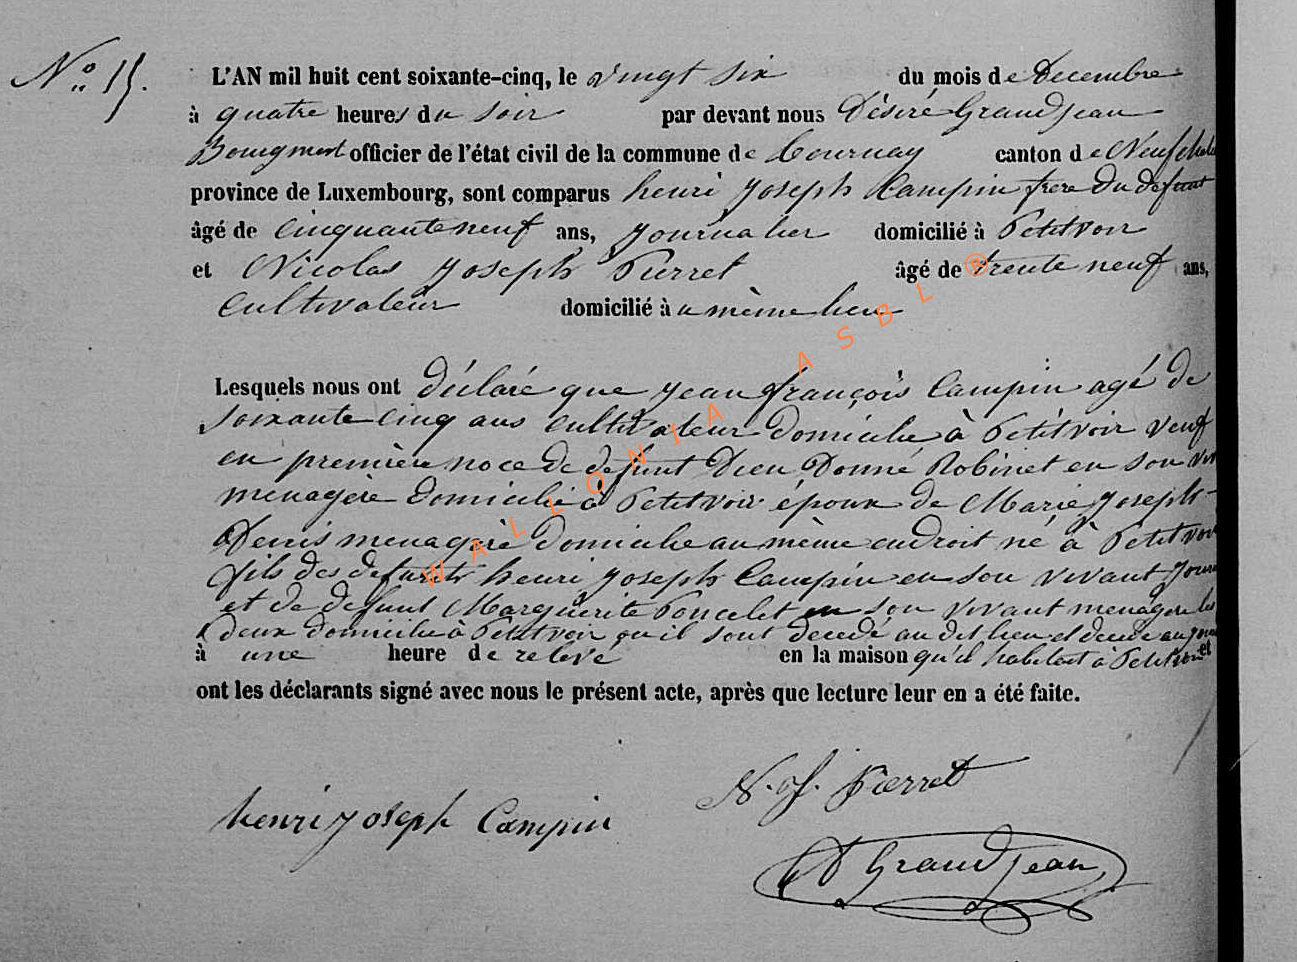 N° 15.
L'AN mil huit cent soixante-cinq, le vingt six du mois de Decembre
à quatre heures du soir par devant nous Désiré Grandjean
Bourgmest officier de l'état civil de la commune de Tournay canton de Neufchate
province de Luxembourg, sont comparus henri joseph Campin frere du defunt
âgé de cinquante neuf ans, journalier domicilié à Petitvoir
et Nicolas joseph Pierret âgé de trente neuf ans,
cultivateur domicilié à u même lieu
Lesquels nous ont déclaré que jean françois Campin agé de
soixante cinq ans cultivateur domicilie à Petitvoir veuf
en première noce de defunt Dieu Donné Robinet en son viv
menagère domicilié à Petitvoir époux de Marie joseph
Denis menagère domicilie au même endroit né à Petitvoir
fils des defunts henri joseph Campin en son vivant journ
et de defunt Marguerite Poncelet en son vivant menagere les
deux domicilie à Petitvoir ou il sont decedé au dit lieu et decede au jour
à une heure de relevé en la maison qu'il habitait à Petitvoir et
ont les déclarants signé avec nous le présent acte, après que lecture leur en a été faite.
henri joseph Campin
N. J. Pierret
D Grandjean
WALLONIA ASBL ®